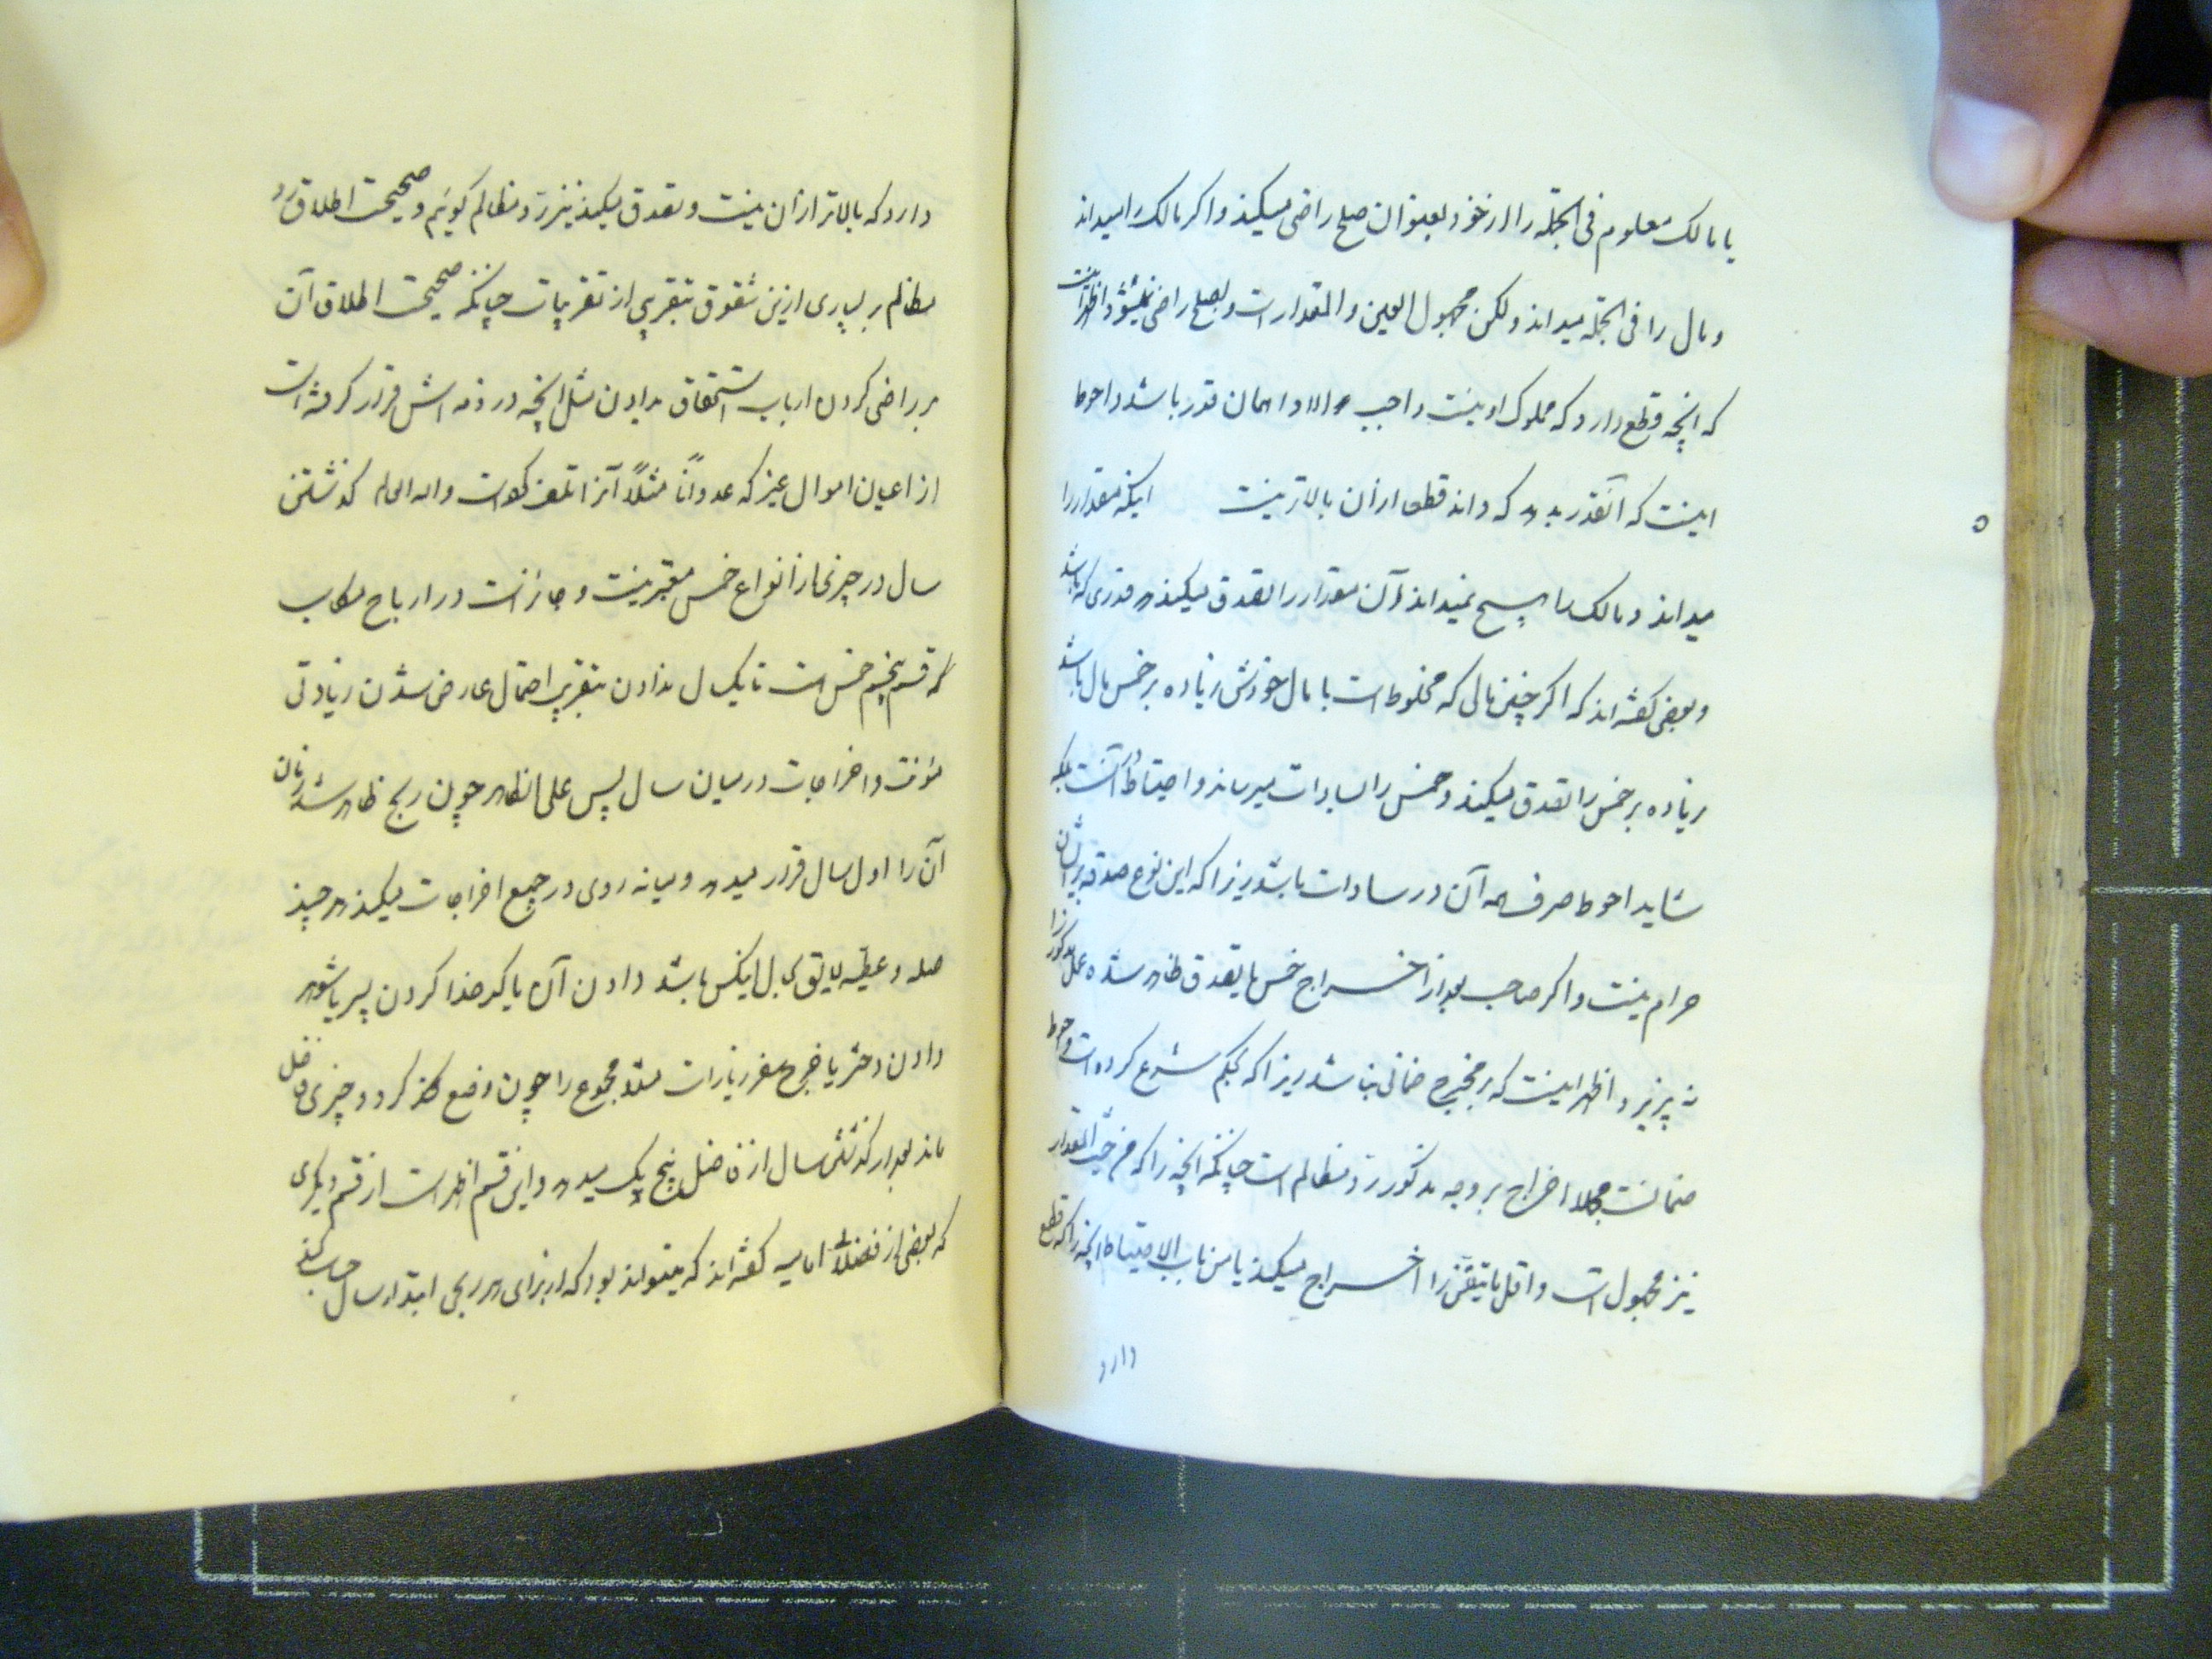 یا مالک معلوم فی الجمله را از خود بعنوان صلح راضی میکند و اگر مالک را میداند
و مال را فی الجمله میداند ولکن مجهول العین والمقدار است و بصلح راضی نمیشود اظهر آنست
که آنچه قطع دارد که مملوک او نیست واجب همان قدر باشد و احوط
اینست که آنقدر بدهد که داند قطعا از آن بالاتر نیست اینکه مقدار را
میداند و مالک را هیچ نمیداند آن مقدار را تصدق میکند هر قدری که باشد
و بعضی گفته‌اند که اگر چنین مالی که مخلوط است با مال خودش زیاده بر خمس مال باشد
زیاده بر خمس را تصدق میکند و خمس را بسادات میرساند و احتیاط در آنست بلکه
شاید احوط صرف همه آن در سادات باشد زیرا که این نوع صدقه بر ایشان
حرام نیست و اگر صاحب بعد از اخراج خمس یا تصدق ظاهر شده عمل مذکور را
نه پذیرد اظهر اینست که بر مخرج ضمانی نباشد زیرا که بحکم شرع کرده است و احوط
ضمانست مجملا اخراج بر وجه مذکور رد مظالم است چنانکه آنچه را که من حیث المقدار
نیز مجهول است و اقل ما تیقن را اخراج میکند یا من باب الاحتیاط آنچه را که قطع
دارد
دارد که بالاتر از آن نیست و تصدق میکند نیز رد مظالم گوئیم و صحیحست اطلاق رد
مظالم بر بسیاری ازین شقوق بتقریبی از تقریبات چنانکه صحیحست اطلاق آن
بر راضی کردن ارباب استحقاق بدادن مثل آنچه در ذمه اش قرار گرفته است
از اعیان اموال غیر که عدوانا مثلا آنرا تلف کرده است والله العالم گذشتن
سال در چیزها از انواع خمس معتبر نیست و جایز است در ارباح مکاسب
که قسم پنجم خمس است تا یکسال ندادن بتقریب احتمال عارض شدن زیادتی
مؤنت و اخراجات در میان سال پس علی الظاهر چون ربح ظاهر شد زمان
آن را اول سال قرار میدهد و میانه روی در جمیع اخراجات میکند هر چند
صله و عطیه لایق بحال اینکس باشد دادن آن یا کدخدا کردن پسر یا شوهر
دادن دختر یا خرج سفر زیارات مثلا مجموع را چون وضع کرد و چیزی فاضل
ماند بعد از گذشتن سال از فاضل پنج یک میدهد و این قسم اظهر است از قسم دیگری
که بعضی از فضلاء امامیه گفته‌اند که میتواند بود که از برای هر ربحی ابتداء سال حساب کند